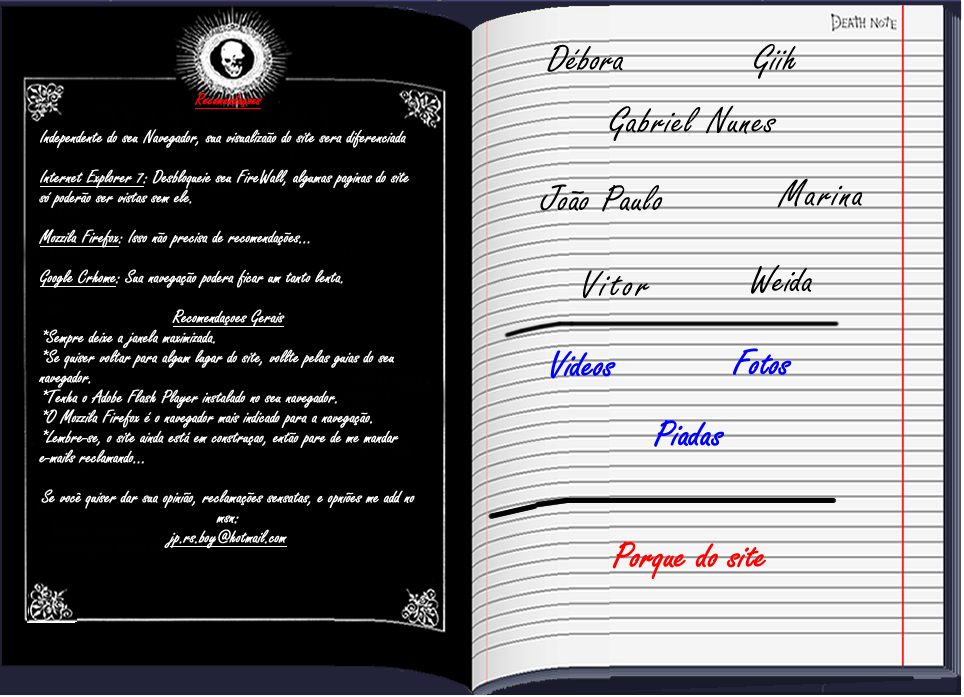 Recomendações
Independente do seu Navegador, sua visualizaão do site sera diferenciada
Internet Explorer 7: Desbloqueie seu FireWall, algumas paginas do site
só poderão ser vistas sem ele.
Mozzila Firefox: Isso não precisa de recomendações...
Google Crhome: Sua navegação podera ficar um tanto lenta.
Recomendaçoes Gerais
*Sempre deixe a janela maximizada.
*Se quiser voltar para algum lugar do site, vollte pelas guias do seu
navegador.
*Tenha o Adobe Flash Player instalado no seu navegador.
*O Mozzila Firefox é o navegador mais indicado para a navegação.
*Lembre-se, o site ainda está em construçao, então pare de me mandar
e-mails reclamando...
Se você quiser dar sua opinião, reclamações sensatas, e opniões me add no
msn:
jp.rs.boy@hotmail.com
DEATH NOTE
Débora Giih
Gabriel Nunes
João Paulo Marina
Vitor Weida
Vídeos Fotos
Piadas
Porque do site